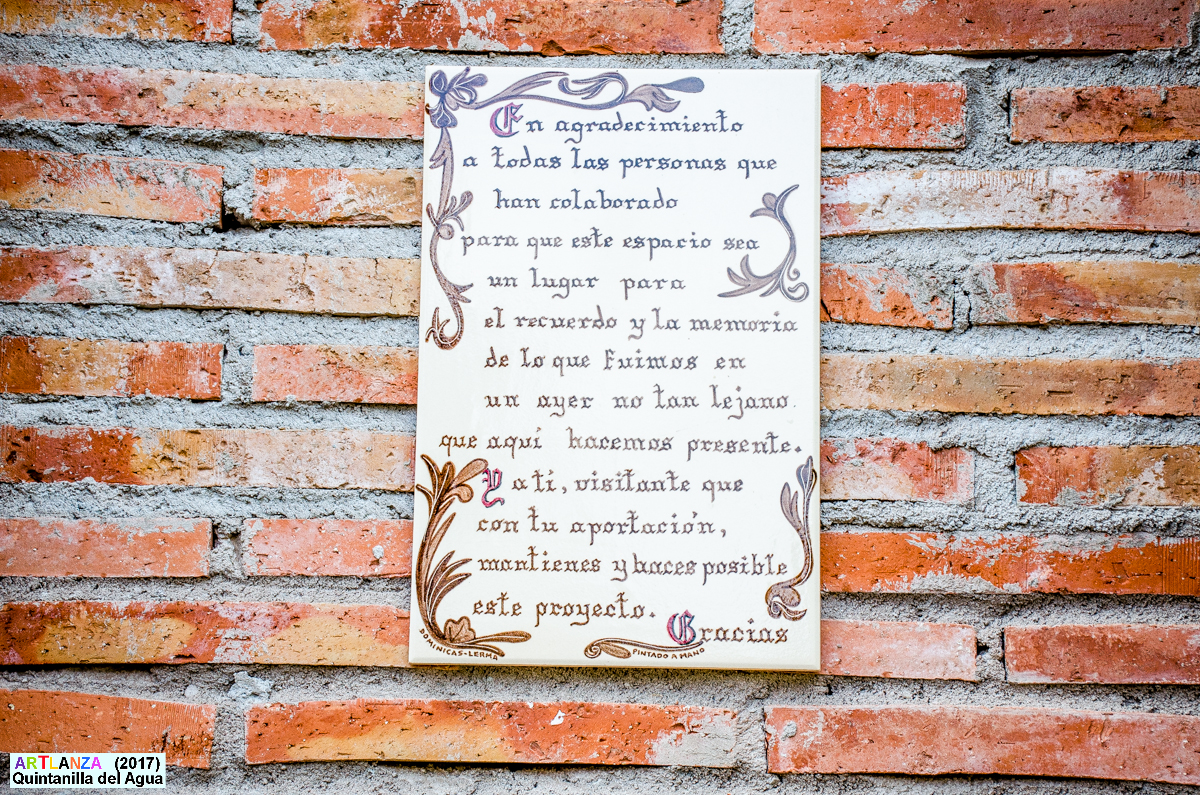 En agradecimiento
a todas las personas que
han colaborado
para que este espacio sea
un lugar para
el recuerdo y la memoria
de lo que fuimos en
un ayer no tan lejano.
que aquí hacemos presente.
Y a tí, visitante que
con tu aportación,
mantienes y haces posible
este proyecto.
Gracias
DOMINICAS-LERMA
PINTADO A MANO
ARTLANZA (2017)
Quintanilla del Agua